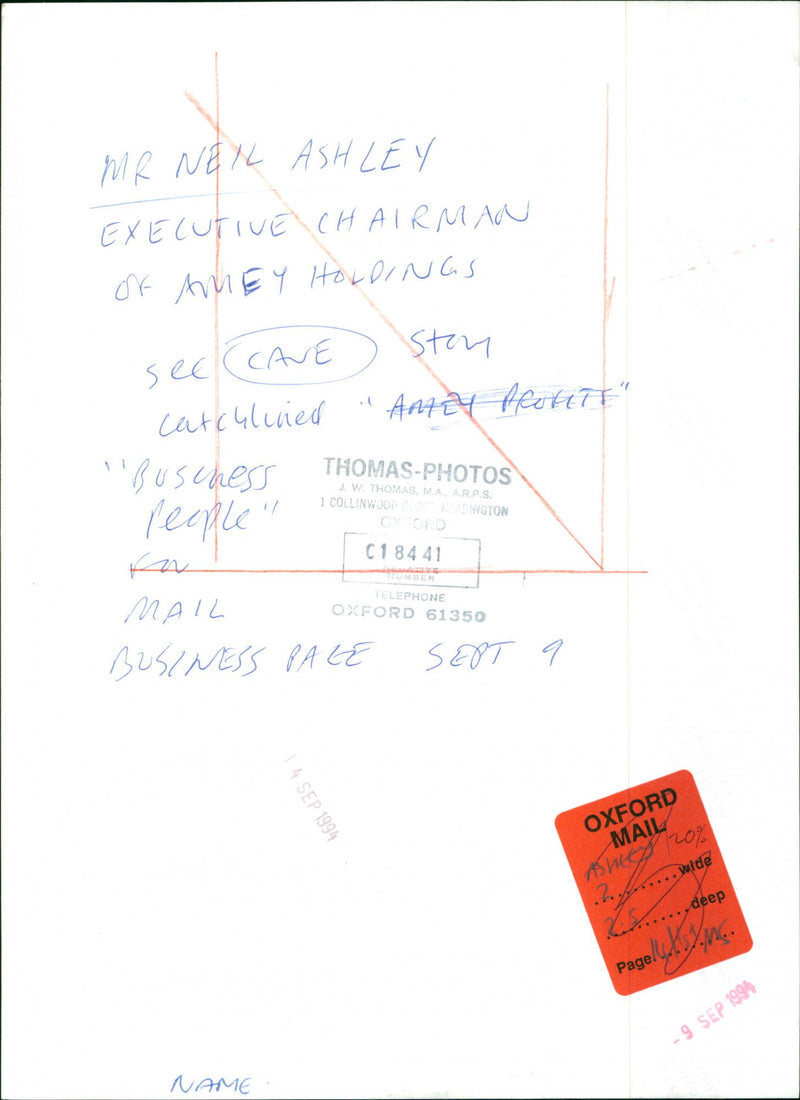 MR NEIL ASHLEY
EXECUTIVE CHAIRMAN
OF AMEY HOLDINGS
see CAVE story
catchlined "AMEY PROFITS"
"BUSINESS
People"
for
MAIL
BUSINESS PAGE SEPT 9
THOMAS-PHOTOS
J. W. THOMAS, M.A., A.R.P.S.
1 COLLINWOOD CLOSE HEADINGTON
OXFORD
C18441
NEGATIVE
NUMBER
TELEPHONE
OXFORD 61350
14 SEP 1994
OXFORD
MAIL
ASHLEY -20%
2 wide
2.5 deep
Page
-9 SEP 1994
NAME